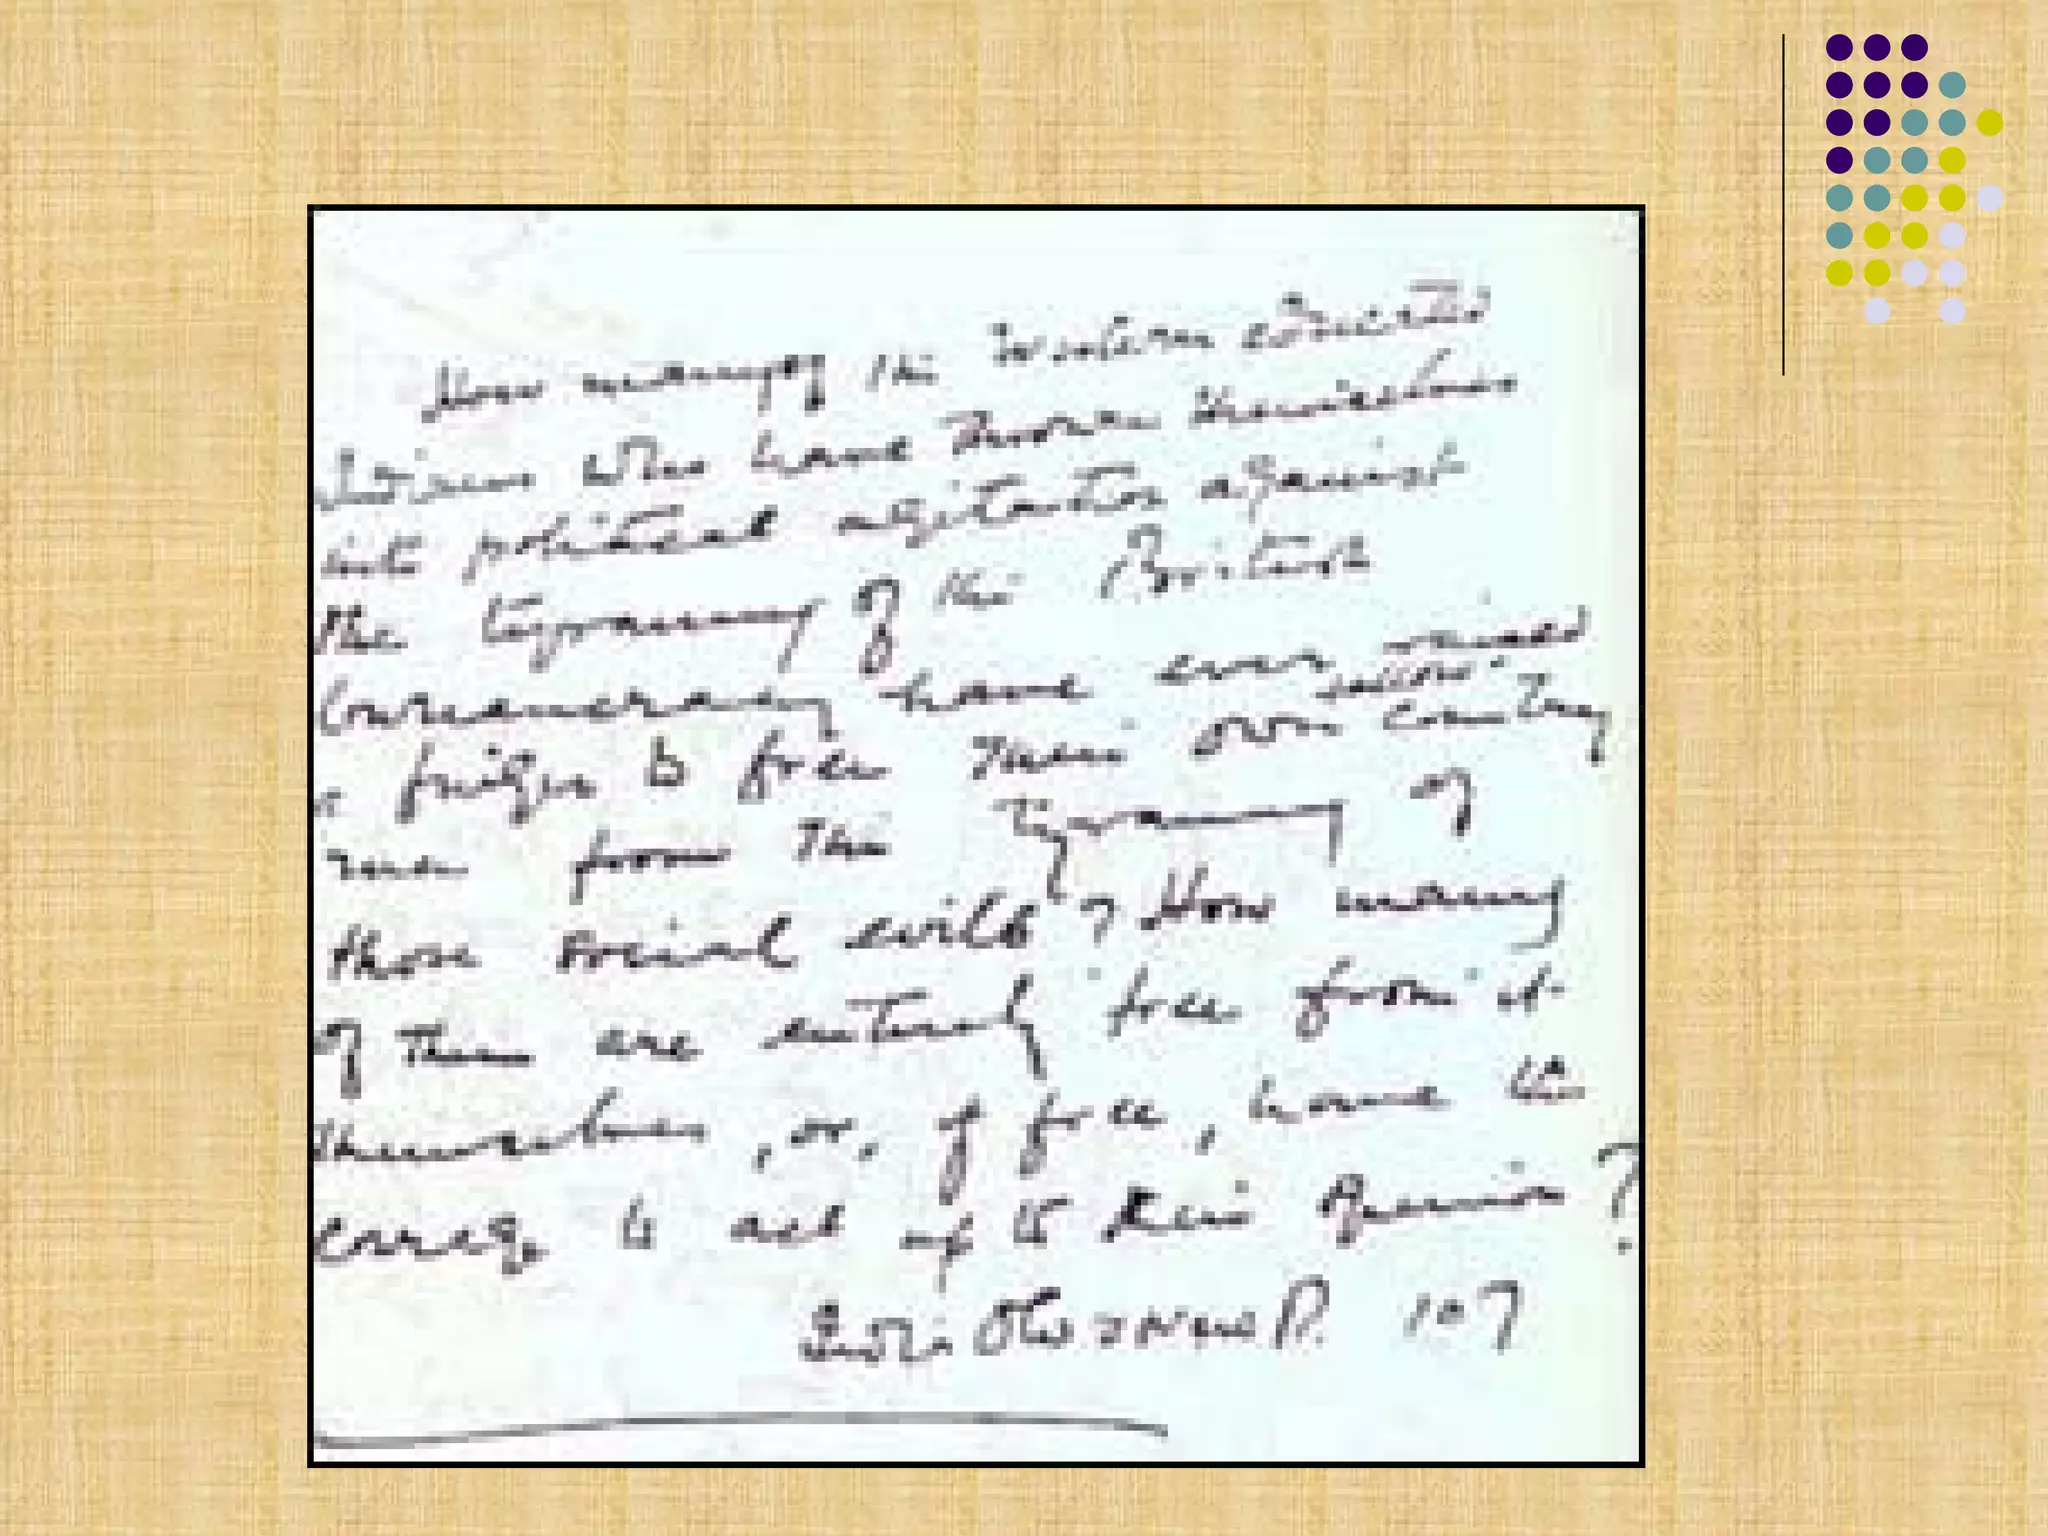 How many of the Western educated
Indians who have thrown themselves
into political agitation against
the tyranny of the British
bureaucracy have ever raised
a finger to free their own fellow country
men from the tyranny of
those social evils? How many
of them are entirely free from it
themselves, or, if free, have the
courage to act up to their opinion?
P. 107